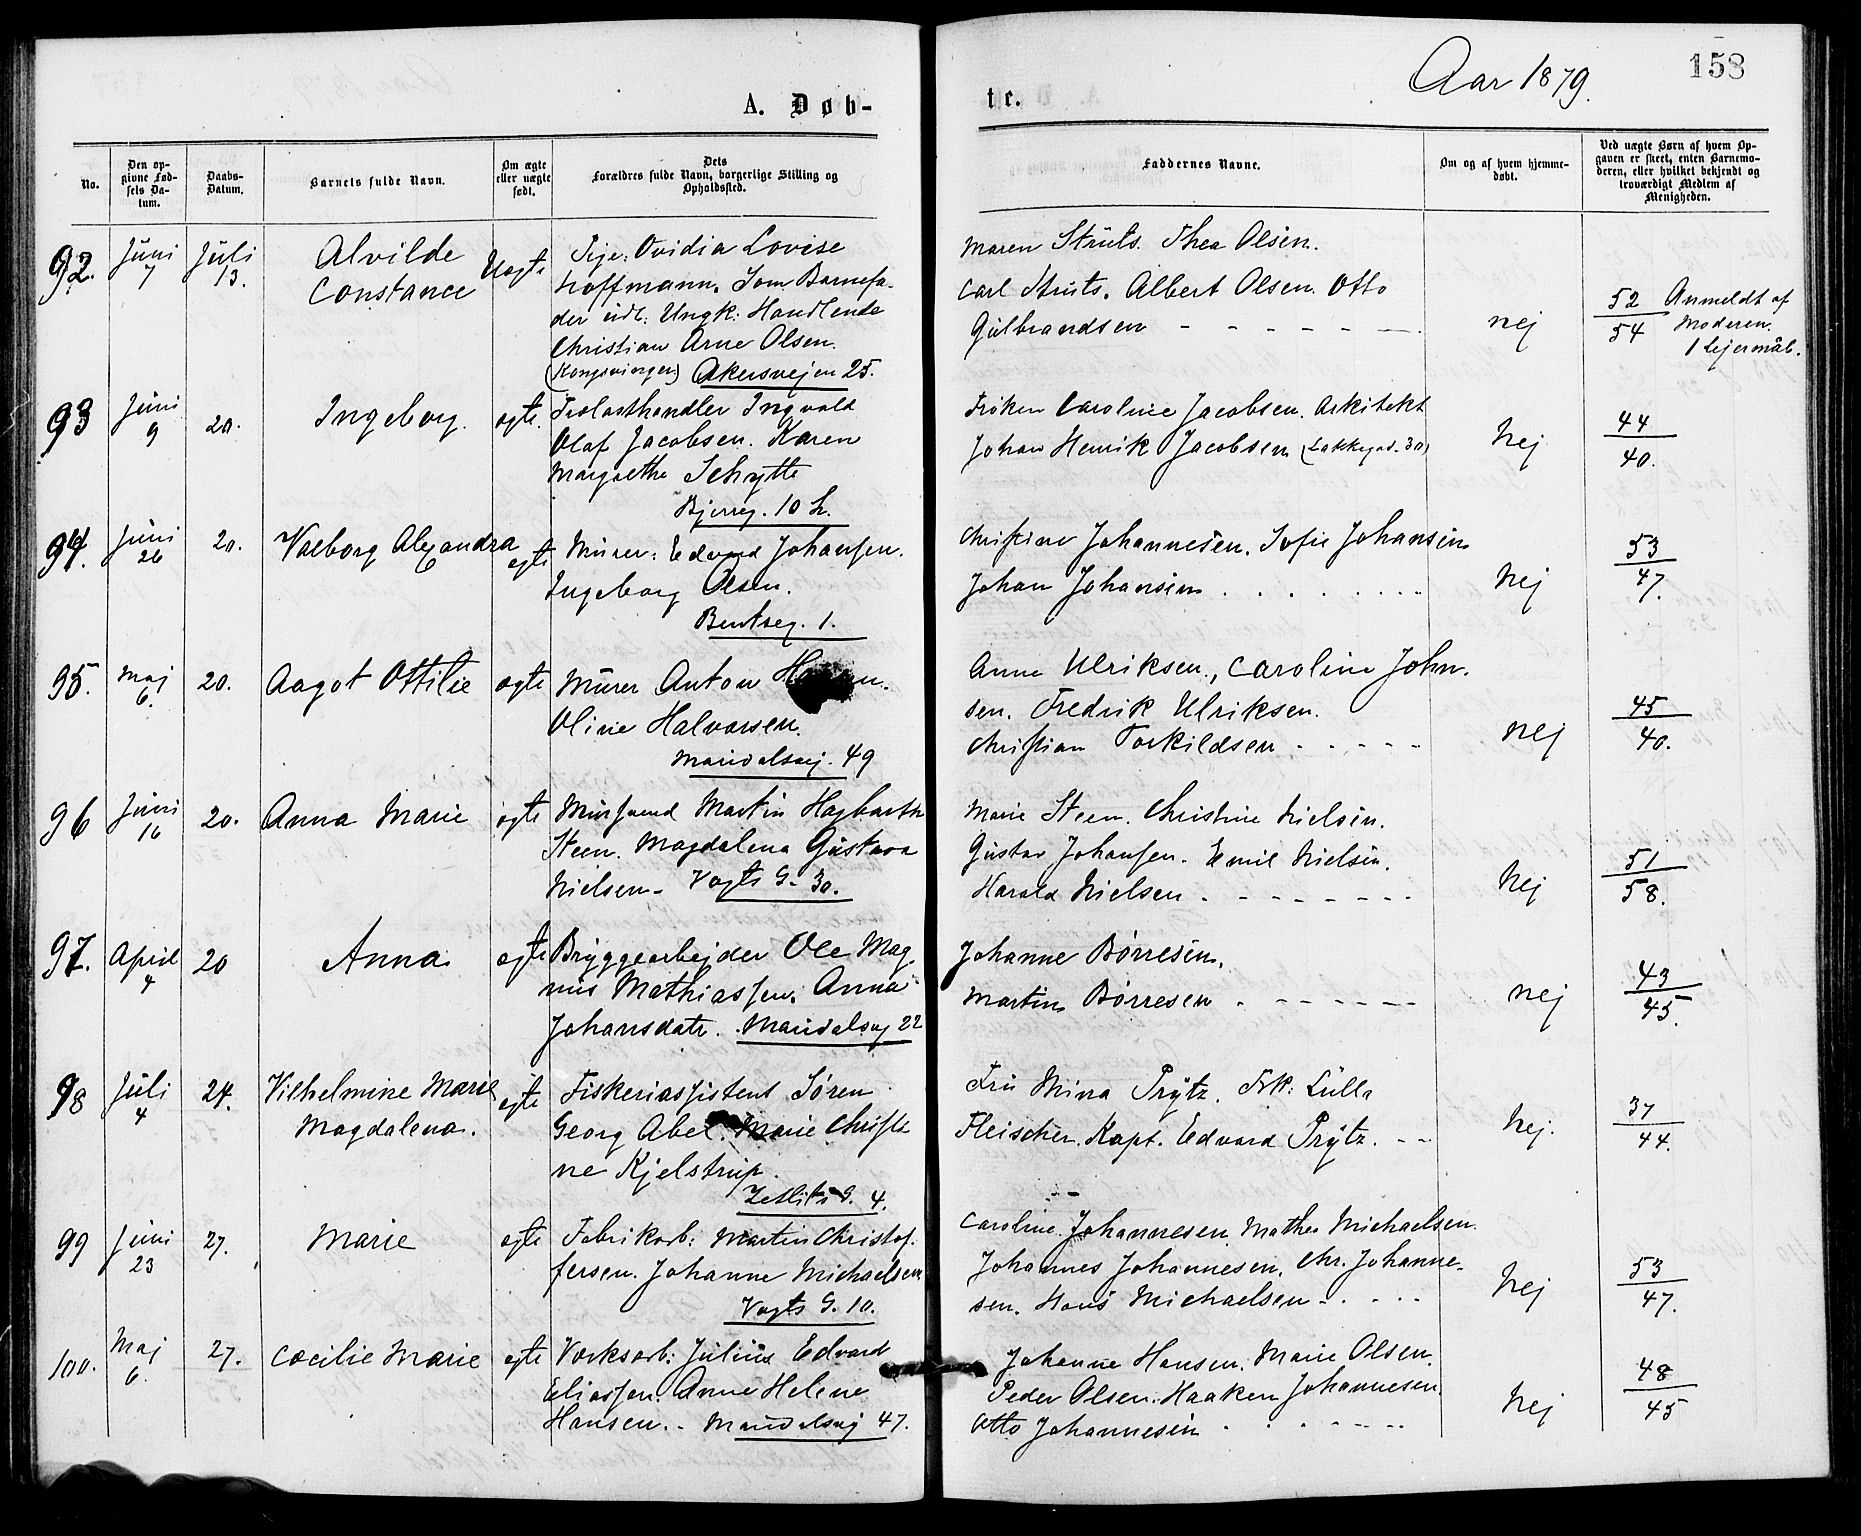 Aar 1879.
158
A. Døb-
te.
No.
Den op-
givne Fød-
sels Da-
tum.
Daabs-
Datum.
Barnets fulde Navn.
Om ægte
eller uægte
født.
Dets
Forældres fulde Navn, borgerlige Stilling og
Opholdssted.
Faddernes Navne.
Om og af hvem hjemme-
døbt.
Ved uægte Børn af hvem Op-
gaven er skeet, enten Barnemo-
deren, eller hvilket bekjendt og
troværdigt Medlem af
Menigheden.
92.
Juni
7
Juli
13.
Alvilde
Constance
Uægte
Pige: Ovidia Lovise
Hoffmann. Som Barnefa-
der udl: Ungk: Handlende
Christian Arne Olsen.
(Kongsvinger) Akersvejen 25.
Maren Struts. Thea Olsen.
Carl Struts. Albert Olsen. Otto
Gulbrandsen - - - - - -
nej
52
54
Anmeldt af
Moderen.
1 Lejermål.
93
Juni
9
20.
Ingeborg.
ægte.
Trælasthandler Ingvald
Olaf Jacobsen. Karen
Margrethe Schytte
Bjerreg. 10 b.
Frøken Caroline Jacobsen. Arkitekt
Johan Henrik Jacobsen (Lakkegad. 30)
Nej
44
40.
94.
Juni
26
20.
Valborg Alexandra
ægte
Murer: Edvard Johansen.
Ingeborg Olsen.
Bentseg. 1.
Christine Johannesen. Sofie Johansen
Johan Johansen . . . . . . .
Nej
53
47.
95.
Maj
6.
20.
Aagot Ottilie
ægte
Murer Anton
Oline Halvorsen.
Maridalsvej. 49
Anne Ulriksen., Caroline John-
sen. Fredrik Ulriksen.
Christian Torkildsen - - - - -
nej
45
40.
96
Juni
16
20.
Anna Marie
ægte
Mursvend Martin Hagbarth
Steen. Magdalena Gustava
Nielsen - Vogts G. 30.
Marie Steen. Christine Nielsen.
Gustav Johansen. Emil Nielsen.
Harald Nielsen . - - - - - -
Nej
51
58.
97.
April
4
20
Anna
ægte
Bryggearbejder Ole Mag-
nus Mathiassen. Anna
Johansdatr. Maridalsvej 22
Johanne Børresen.
Martin Børresen . - - - - - -
nej
43
45.
98
Juli
4
24.
Vilhelmine Marie
Magdalena.
ægte
Fiskeriassistent Søren
Georg Abel. Marie Christi-
ne Kjelstrup.
Zetlitz G. 4.
Fru Mina Prytz. Frk: Lulla
Fleischer. Kapt. Edvard Prytz. - -
Nej.
37
44.
99
Juni
23
27.
Marie
ægte
Fabrikarb: Martin Christof-
fersen. Johanne Michaelsen.
Vogts G. 10.
Caroline Johannesen. Mathea Michaelsen.
Johannes Johannesen. Chr. Johanne-
sen. Hans Michaelsen - . - - -
Nej
53
47.
100.
Maj
6.
27.
Cæcilie Marie
ægte
Værksarb: Julius Edvard
Eliassen. Anne Helene
Hansen. - Maridalsvej 47.
Johanne Hansen. Marie Olsen.
Peder Olsen. Haaken Johannesen.
Otto Johannesen . . . - - - -
Nej
48
45